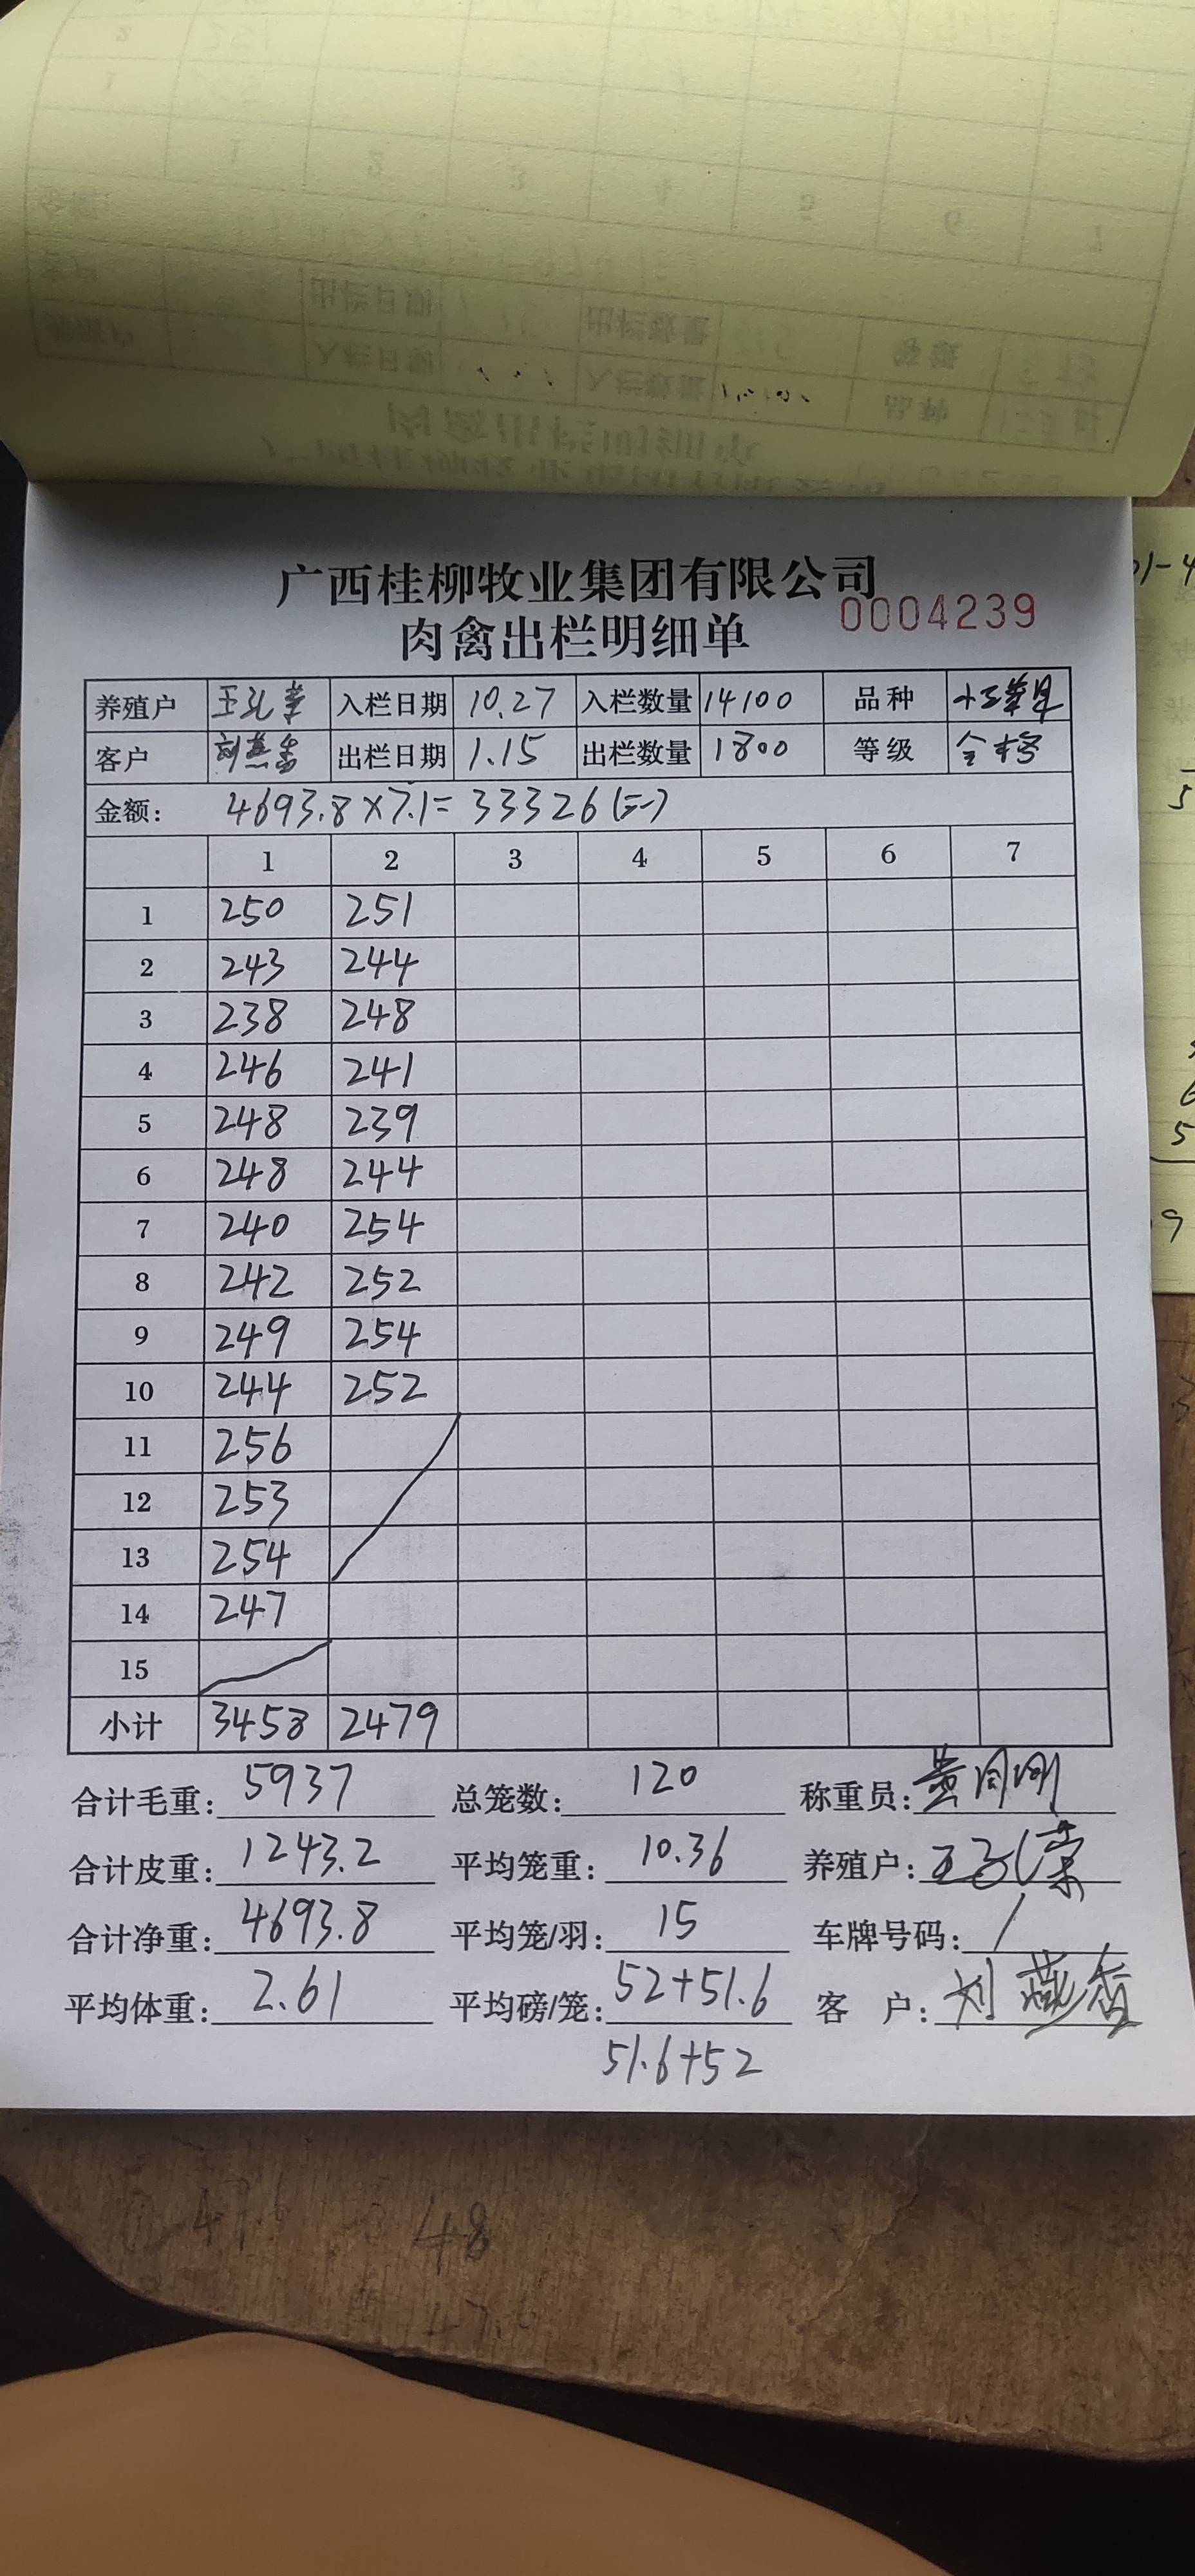 广西桂柳牧业集团有限公司
肉禽出栏明细单 0004239
养殖户 王孔 入栏日期 10.27 入栏数量 14100 品种
客户 刘燕 出栏日期 1.15 出栏数量 1800 等级 合格
金额: 4693.8×7.1=33326
1 2 3 4 5 6 7
1 250 251
2 243 244
3 238 248
4 246 241
5 248 239
6 248 244
7 240 254
8 242 252
9 249 254
10 244 252
11 256
12 253
13 254
14 247
15
小计 3458 2479
合计毛重: 5937 总笼数: 120 称重员: 黄
合计皮重: 1243.2 平均笼重: 10.36 养殖户: 王
合计净重: 4693.8 平均笼/羽: 15 车牌号码: /
平均体重: 2.61 平均磅/笼: 52+51.6 客 户: 刘燕
51.6+52
48
47.